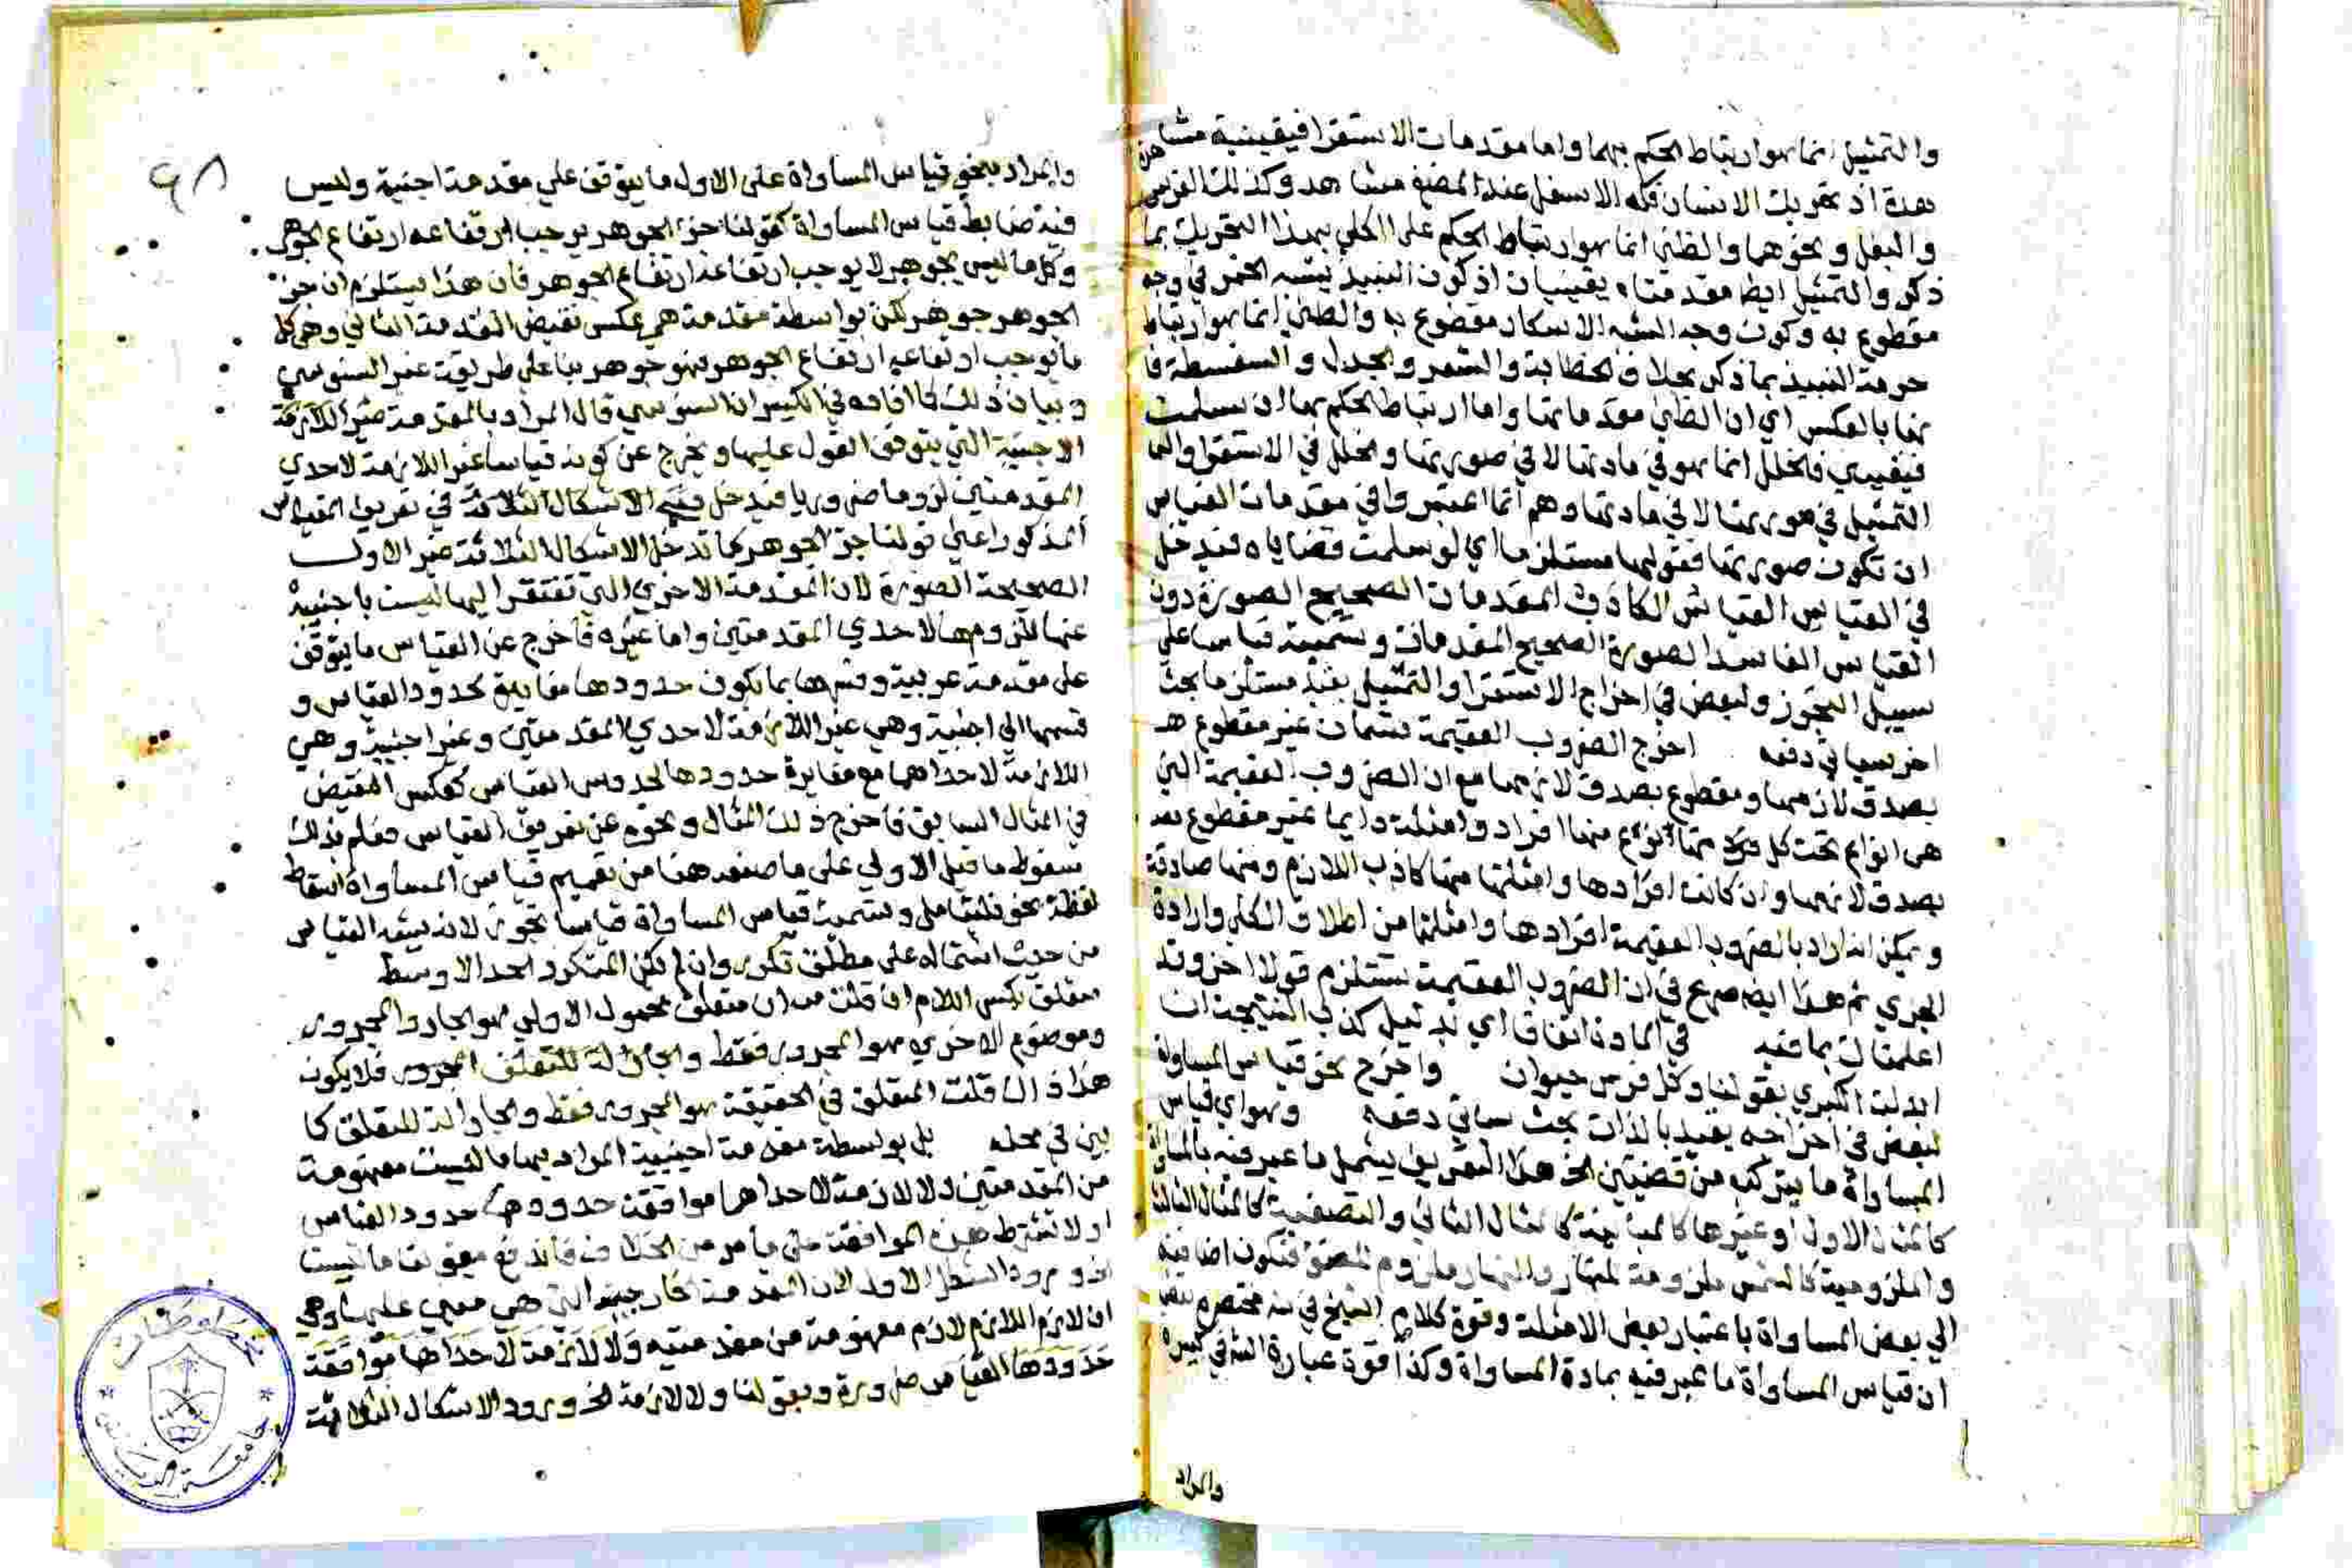 والتمثيل انما هو ارتباط الحكم بهما واما مقدمات الاستقرا فيقينية مشا
هدة اذ تحريك الانسان فكه الاسفل عند المضغ مشاهد وكذلك الفرس
والبغل ونحوهما والظني انما هو ارتباط الحكم على الكلي بهذا التحريك بما
ذكر والتمثيل ايضا مقدمتاه يقينيتان اذ كون النبيذ يشبه الخمر في وجه
مقطوع به وكون وجه الشبه الاسكار مقطوع به والظني انما هو ارتباط
حرمة النبيذ بما ذكر بخلاف الخطابة والشعر والجدل والسفسطة فا
نها بالعكس اي ان الظني مقدماتها واما ارتباط الحكم بها ان سلمت
فيقيني فالخلل انما هو في مادتها لا في صورتها والخلل في الاستقرا والتمـ
التمثيل في صورتها لا في مادتها وهم انما اعتبروا في مقدمات القياس
ان تكون صورتها فقولهم مستلزما اي لو سلمت قضاياه فيدخل
في القياس القياس الكاذب المقدمات الصحيح الصورة دون
القياس الفاسد الصورة الصحيح المقدمات وتسميته قياسا على
سبيل التجوز ولبعض في اخراج الاستقرا والتمثيل بقيد مستلزما بحث
اخر سياتي دفعه اخرج الضروب العقيمة قسمان غير مقطوع
بصدق لازمها ومقطوع بصدق لازمها مع ان الضروب العقيمة التي
هي انواع تحت كل منها انواع منها افراد وامثلة دايما غير مقطوع
بصدق لازمها وان كانت افرادها وامثلتها منها كاذب اللازم ومنها صادقة
ويمكن انه اراد بالضروب العقيمة افرادها وامثلتها من اطلاق الكلي وارادة
الجزي ثم هذا ايضه صريح في ان الضروب العقيمة تستلزم قولا اخر وقد
اعلمناك بما فيه في المادة اتفاق اي بدليل كذب النتيجة ان
ابدلت الكبري بقولنا وكل فرس حيوان واخرج نحو قياس المساواة
لبعض في اخراجه بقيد بالذات بحث سياتي دفعه وهو اي قياس
المساواة ما يتركب من قضيتين الخ هذا التعريف يشمل ما عبر فيه بالمساواة
كالمثال الاول او غيرها كالمباينة كالمثال الثاني والنصفية كالمثال الثالث
والملزومية كالشمس ملزومة للنهار والنهار ملزوم للضوء فتكون اضافته
الي بعض المساواة باعتبار بعض الامثلة وقوة كلام الشيخ في مختصره
ان قياس المساواة ما عبر فيه بمادة المساواة وكذا قوة عبارة الش في كبيره
والمراد
والمراد بنحو قياس المساواة على الاول ما يتوقف علي مقدمة اجنبية وليس
فيه ضابط قياس المساواة كقولنا جزء الجوهر يوجب ارتفاعه ارتفاع الجوهر
وكل ما ليس بجوهر لا يوجب ارتفاعه ارتفاع الجوهر فان هذا يستلزم ان جزء
الجوهر جوهر لكن بواسطة مقدمة هي عكس نقيض المقدمة الثاني وهي كل
ما يوجب ارتفاعه ارتفاع الجوهر فهو جوهر بنا على طريقة غير السنوسي
وبيان ذلك كما افاده في الكبير ان السنوسي قال المراد بالمقدمة غير اللازمة
الاجنبية التي يتوقف القول عليها ويخرج عن كونه قياسا غير اللازمة لاحدي
المقدمتين لزوما ضروريا فيدخل فيه الاشكال الثلاثة في تعريف القياس
المذكور اعني قولنا جزء الجوهر كما تدخل الاشكال الثلاثة غير الاول
الصحيحة الصورة لان المقدمة الاخري التي تفتقر اليها ليست باجنبية
عنها للزومها لاحدي المقدمتين واما غيره فاخرج عن القياس ما يتوقف
على مقدمة غريبة وفسرها بما تكون حدودها مغايرة لحدود القياس و
قسمها الي اجنبية وهي غير اللازمة لاحدي المقدمتين وغير اجنبية وهي
اللازمة لاحداهما مع مغايرة حدودها لحدود القياس كعكس النقيض
في المثال السابق فاخرج ذلك المثال ونحوه عن تعريف القياس فعلم بذلك
سقوط ما قيل الاولي على ما صنعه هنا من تعميم قياس المساواة اسقاط
لفظة نحو فليتامل وتسمية قياس المساواة قياسا تجوز لانه يشبه القياس
من حيث اشتماله على مطلق تكرر وان لم يكن المتكرر الحد الاوسط
متعلق بكسر اللام ان قلت متعلق محمول الاولي هو الجار والمجرور
وموضوع الاخري هو المجرور فقط والجار الة للتعلق المجرور فلا يكون
هذا ذاك قلت المتعلق في الحقيقة هو المجرور فقط والجار الة للتعلق كما
بين في محله بل بواسطة مقدمة اجنبية المراد بها ما ليست مفهومة
من المقدمتين ولا لازمة لاحداهما موافقة حدودها حدود القياس
او لا تشترط هذه الموافقة على ما مر من الخلاف فاندفع بقولنا ما ليست
الخ ورود الشكل الاول لان المقدمة الخارجية التي هي مبني عليها وهي
ان لازم اللازم لازم مفهومة من مقدمتيه ولا لازمة لاحداها موافقة
حدودها القياس ضرورة وبقولنا ولا لازمة الخ ورود الاشكال الثلاثة